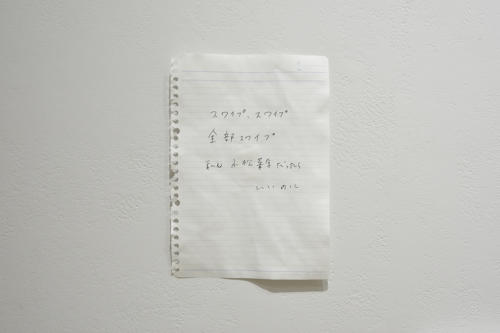 スワイプ、スワイプ
全部スワイプ
永松 だったら
いいのに